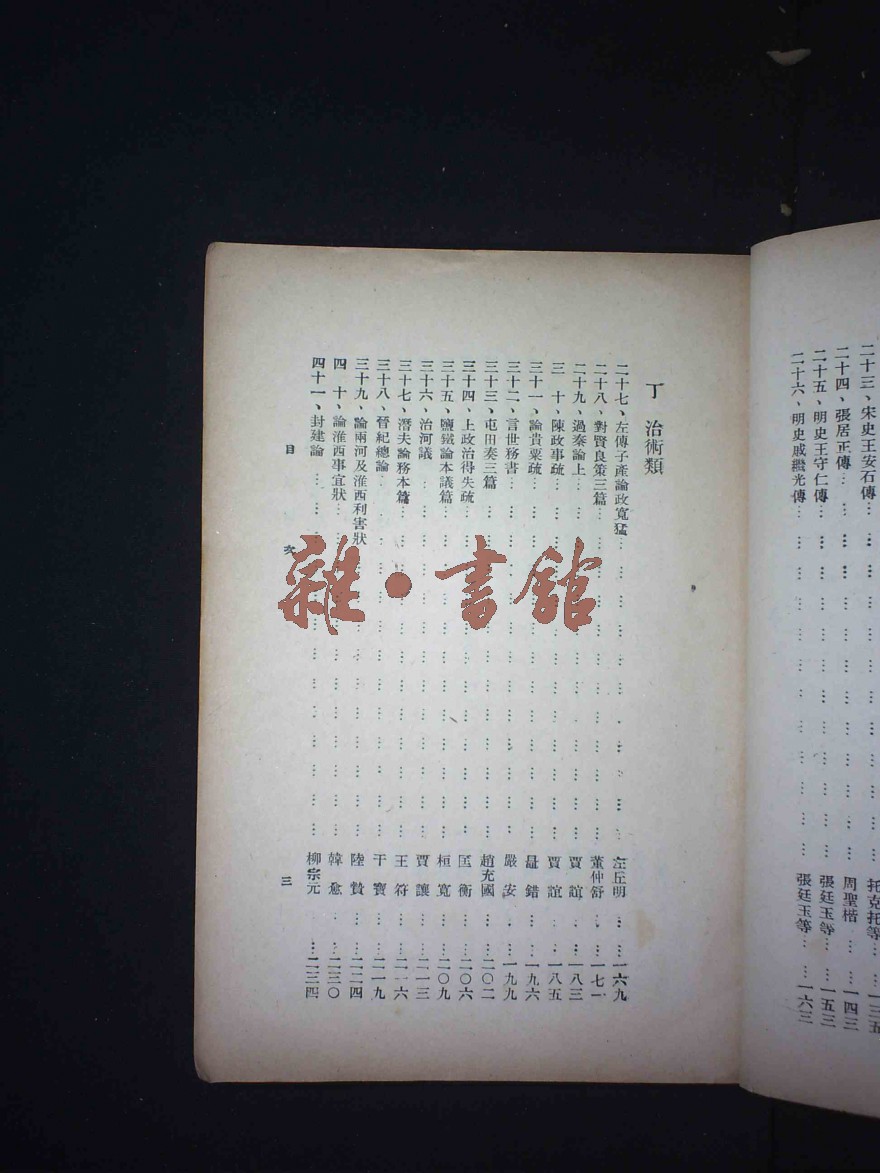 二十三、宋史王安石傳… 托克托等…一三五
二十四、張居正傳… 周聖楷…一四三
二十五、明史王守仁傳… 張廷玉等…一五三
二十六、明史戚繼光傳… 張廷玉等…一六三
丁 治術類
二十七、左傳子產論政寬猛… 左丘明…一六九
二十八、對賢良策三篇… 董仲舒…一七一
二十九、過秦論上… 賈誼…一八三
三十、陳政事疏… 賈誼…一八五
三十一、論貴粟疏… 鼂錯…一九六
三十二、言世務書… 嚴安…一九九
三十三、屯田奏三篇… 趙充國…二〇二
三十四、上政治得失疏… 匡衡…二〇六
三十五、鹽鐵論本議篇… 桓寬…二〇九
三十六、治河議… 賈讓…二一三
三十七、潛夫論務本篇… 王符…二一六
三十八、晉紀總論… 干寶…二一九
三十九、論兩河及淮西利害狀… 陸贄…二二四
四十、論淮西事宜狀… 韓愈…二三〇
四十一、封建論… 柳宗元…二三四
目次 三
雜·書館